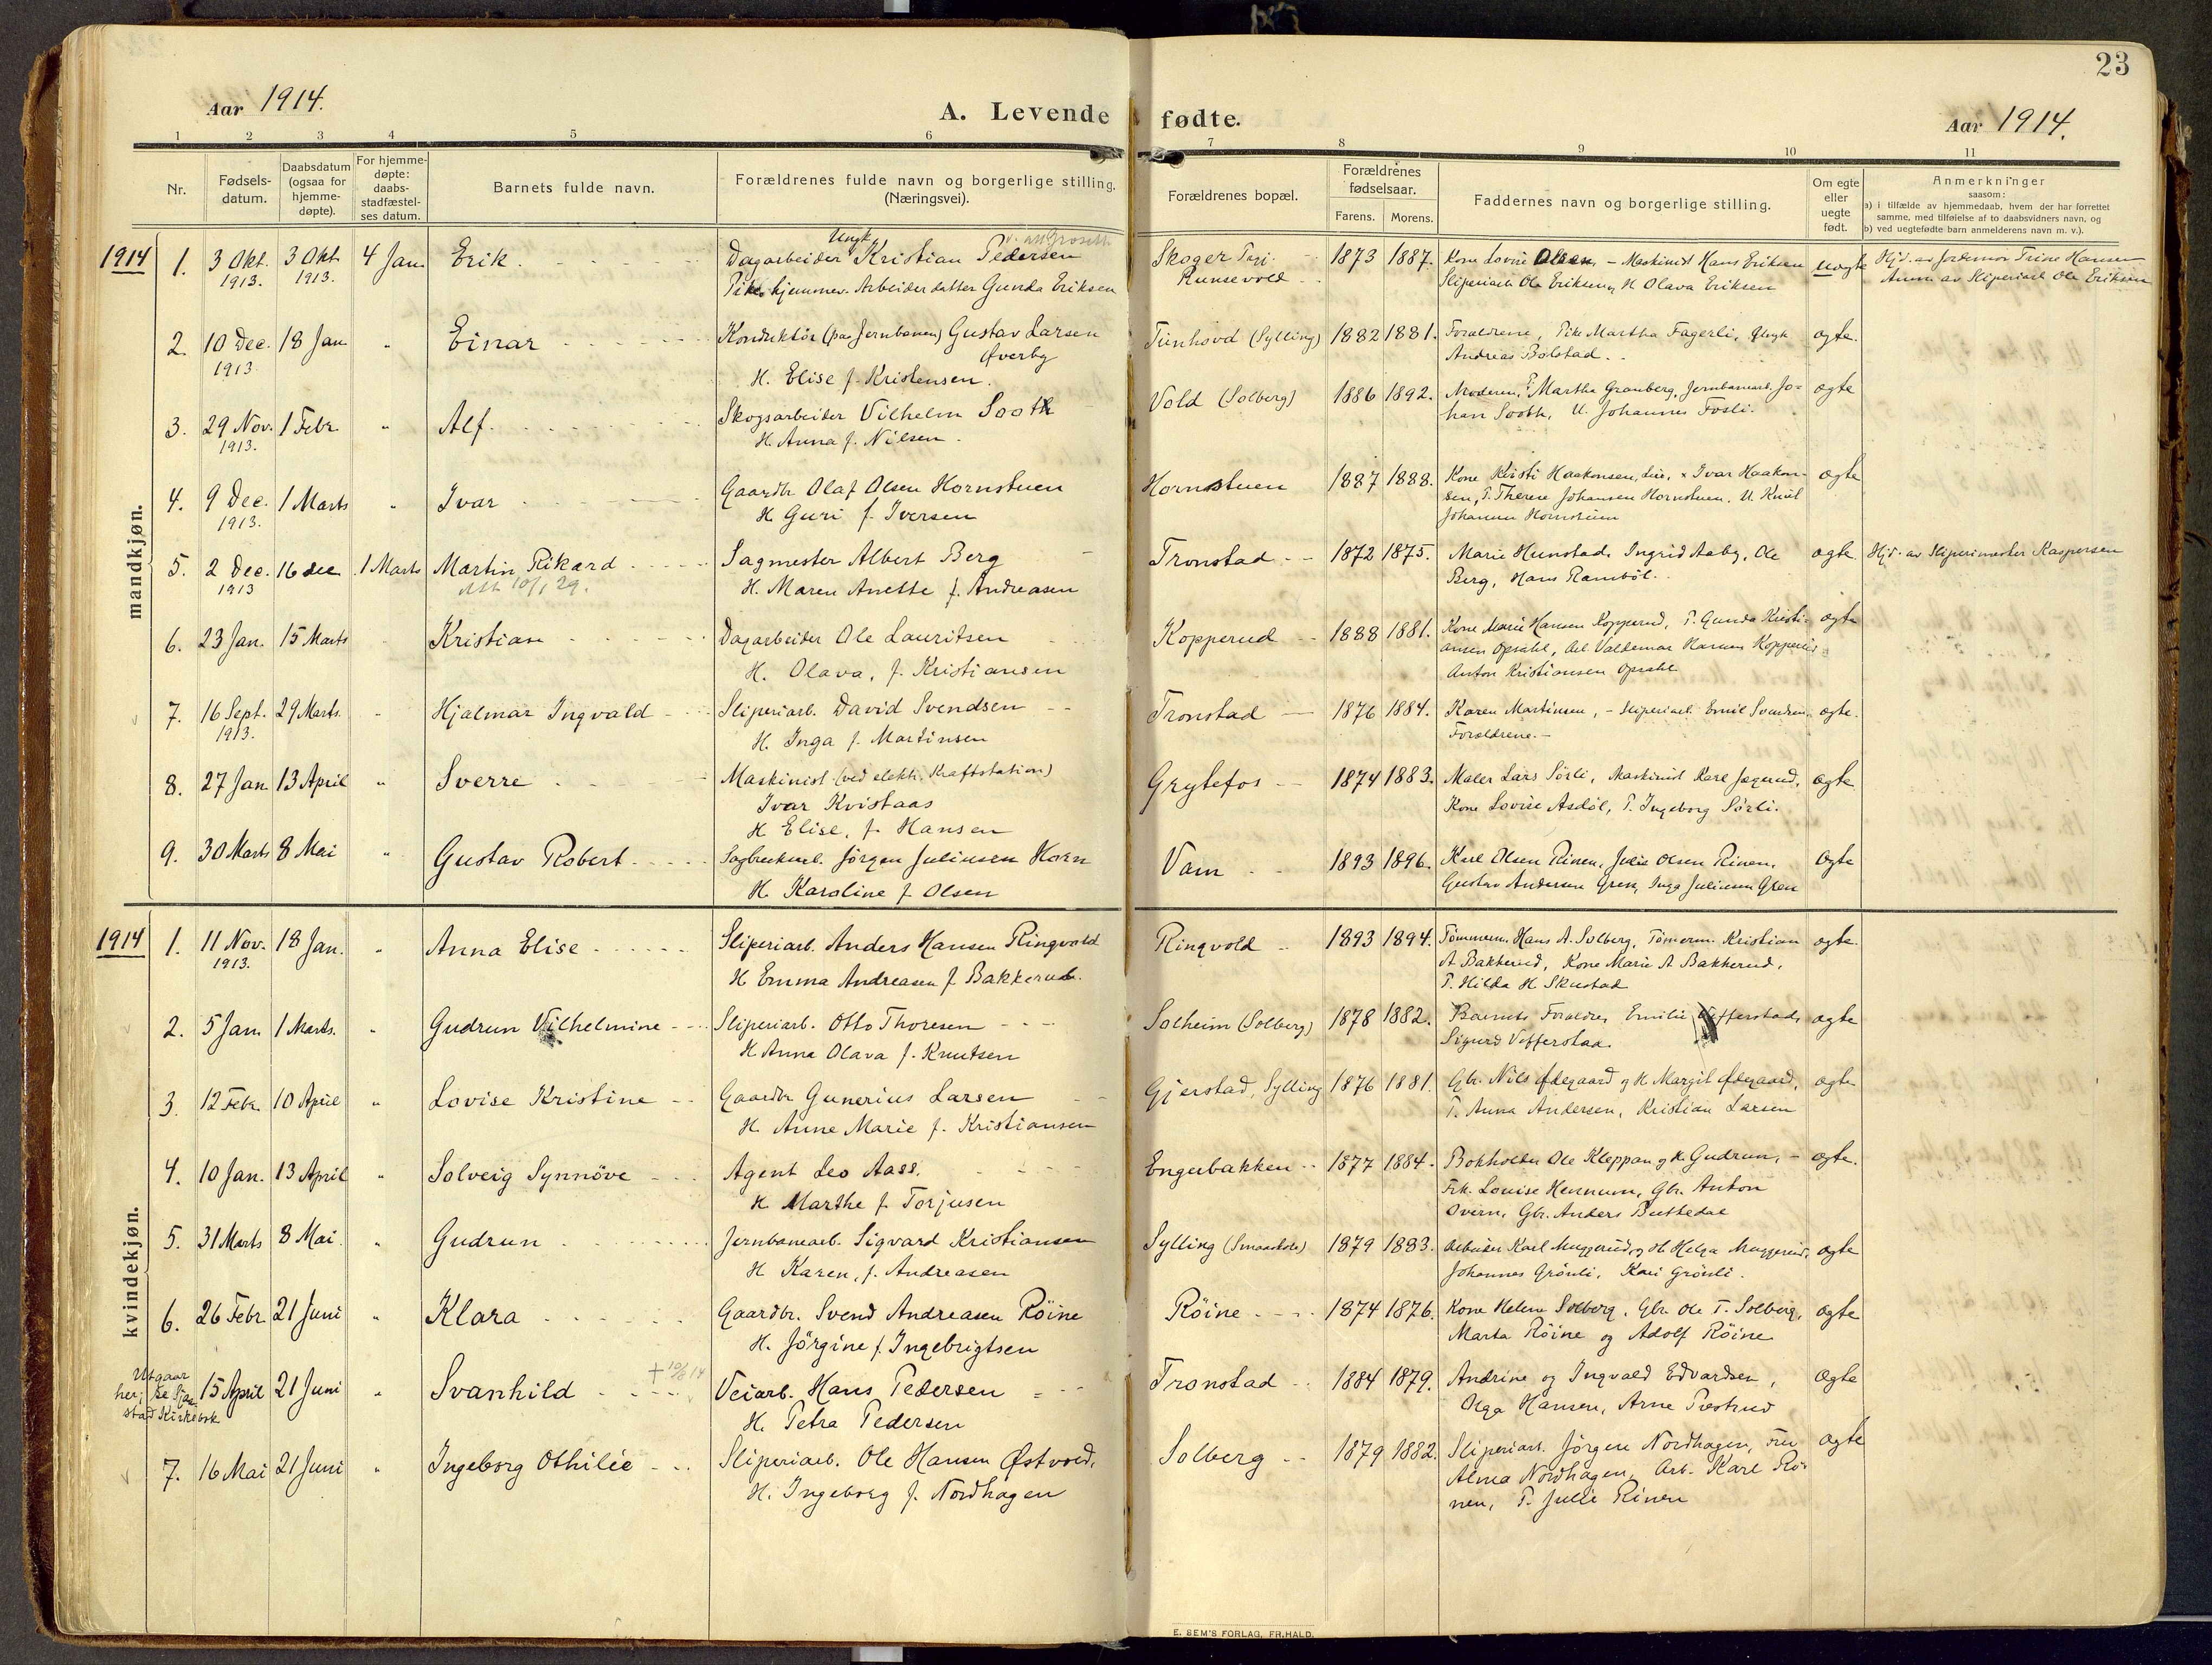 23
Aar 1914.
A. Levende fødte.
Aar 1914.
1 2 3 4 5 6 7 8 9 10 11
Nr.
Fødsels-
datum.
Daabsdatum
(ogsaa for
hjemme-
døpte).
For hjemme-
døpte:
daabs-
stadfæstel-
ses datum.
Barnets fulde navn.
Forældrenes fulde navn og borgerlige stilling.
(Næringsvei).
Forældrenes bopæl.
Forældrenes
fødselsaar.
Farens. Morens.
Faddernes navn og borgerlige stilling.
Om egte
eller
uegte
født.
Anmerkninger
saasom:
a) i tilfælde av hjemmedaab, hvem der har forrettet
samme, med tilføielse af to daabsvidners navn, og
b) ved uegtefødte barn anmelderens navn m. v.).
mandkjøn.
Ungk.
1914 1. 3 Okt. 3 Okt. 4 Jan. Erik. Dagarbeider Kristian Pedersen Skoger 1873 1887. Kone Lovise Olsen – Maskinist Hans Eriksen uegte Hjd. av Jordemor Trine Hansen
1913. 1913. Pike hjemmev. Arbeiderdatter Gunda Eriksen Runsevold Sliperiarb. Ole Eriksen, H Olava Eriksen Anm. av Sliperiarb. Ole Eriksen
2. 10 Dec. 18 Jan " Einar Konduktör (paa Jernbanen) Gustav Larsen Tunhovd (Sylling) 1882 1881. Forældrene, Pike Martha Fagerli, Ungk egte.
1913. Øverby Andreas Bolstad.
H. Elise f. Kristensen.
3. 29 Nov. 1 Febr. " Alf. Skogsarbeider Vilhelm Sooth Vold (Solberg) 1886 1892. Moderen, P. Martha Granberg, Jernbanearb. Jo- egte
1913. H. Anna f. Nilsen. han Sooth, U. Johannes Fosli.
4. 9 Dec. 1 Marts " Ivar Gaardbr. Olaf Olsen Hornstuen Hornstuen 1887 1888. Kone Kristi Haakonsen, Lier, Ivar Haakon- egte
1913. H Guri f. Iversen sen, P. Therese Johansen Hornstuen, U. Knut
Johansen Hornstuen
5. 2 Dec. 16 dec 1 Marts Martin Rikard Sagmester Albert Berg Tronstad 1872 1875. Marie Hunstad, Ingrid Aaby, Ole egte Hjd. av Sliperimester Kaspersen
1913 10/1 29. H. Maren Anette f. Andreasen Berg, Hans Ramböl.
6. 23 Jan. 15 Marts Kristian Dagarbeider Ole Lauritsen Kopperud 1888 1881. Kone Marie Hansen Kopperud, P. Gunda Kristi- egte
H. Olava, f. Kristiansen ansen Opsahl, Arb. Valdemar Hansen Kopperud
Anton Kristiansen Opsahl
7. 16 Sept. 29 Marts. " Hjalmar Ingvald Sliperiarb. David Svendsen Tronstad 1876 1884. Karen Martinsen, – Sliperiarb. Emil Svendsen egte.
1913. H. Inga f. Martinsen Forældrene. –
8. 27 Jan 13 April " Sverre Maskinist (ved elektr. Kraftstation) Grytefos 1874 1883. Maler Lars Sörli, Maskinist Karl Jægerud, egte
Ivar Kvistaas Kone Lovise Asdöl, P. Ingeborg Sörli.
H Elise, f. Hansen
9. 30 Marts 8 Mai " Gustav Robert Sagbrukarb. Jörgen Juliusen Horn Vam 1893 1896. Karl Olsen Rinen, Julie Olsen Rinen, egte
H. Karoline f. Olsen Gustav Andersen Gren, Inga Juliusen Gren
kvindekjøn.
1914 1. 11 Nov. 18 Jan. " Anna Elise Sliperiarb. Anders Hansen Ringvold Ringvold 1893 1894. Tömmerm. Hans A. Solberg, Tömerm. Kristian egte.
1913. H Emma Andreasen f Bakkerud. A Bakkerud, Kone Marie A Bakkerud,
P. Hilda H Skustad
2. 5 Jan. 1 Marts. " Gudrun Vilhelmine Sliperiarb. Otto Thoresen Solheim (Solberg) 1878 1882. Barnets Forældre, Emilie Vefferstad, egte
H Anna Olava f. Knutsen Sigurd Vefferstad.
3. 12 Febr. 10 April " Lovise Kristine Gaardbr Gunerius Larsen Gjerstad, Sylling 1876 1881. Gbr. Nils Ødegaard og H Margit Ødegaard, egte
H. Anne Marie f. Kristiansen P. Anna Andersen, Kristian Larsen
4. 10 Jan. 13 April " Solveig Synnöve Agent Leo Aass. Engerbakken 1877 1884. Bokholder Ole Kleppan og H. Gudrun, – egte.
H Marthe f Torjusen Frk. Louise Hennum, Gbr. Anton
Overn, Gbr. Anders Buttedal
5. 31 Marts 8 Mai. " Gudrun Jernbanearb. Sigvard Kristiansen Sylling 1879 1883. Arbeider Karl Muggerud og H. Helga Muggerud, egte
H Karen, f. Andreasen Johannes Grönli, Kari Grönli.
6. 26 Febr. 21 Juni " Klara Gaardbr. Svend Andreasen Röine Röine 1874 1876. Kone Helene Solberg, Gbr. Ole T. Solberg, egte
H. Jörgine f. Ingebrigtsen Marta Röine og Adolf Röine
Utgaar
her; se Sja-
stad Kirkebok 15 April 21 Juni " Svanhild † 10/6 14 Veiarb. Hans Pedersen Tronstad 1884 1879. Andrine og Ingvald Edvardsen, egte
H. Petra Pedersen Olga Hansen, Arne Præstrud
7. 16 Mai 21 Juni " Ingeborg Othilie Sliperiarb. Ole Hansen Østvold, Solberg 1879 1882. Sliperiarb. Jörgen Nordhagen, Fru egte
H. Ingeborg f. Nordhagen Alma Nordhagen, Arb. Karl Rö-
nen, P. Julie Rinen
E. SEM'S FORLAG, FR.HALD.